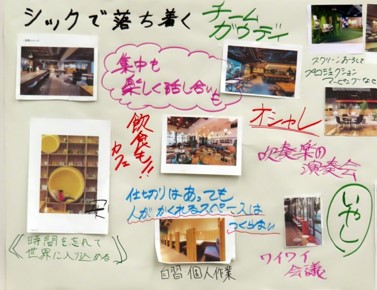 シックで落ち着く
チーム
ガウディ
スクリーンおろして
プロジェクション
マーピングなど
集中も
楽しく話し合いも
飲食も!!
カフェ
オシャレ
吹奏楽の
演奏会
仕切りはあっても
人がかくれるスペースは
つくらない
いやし
時間を忘れて
世界に入り込める
自習 個人作業
ワイワイ
会議